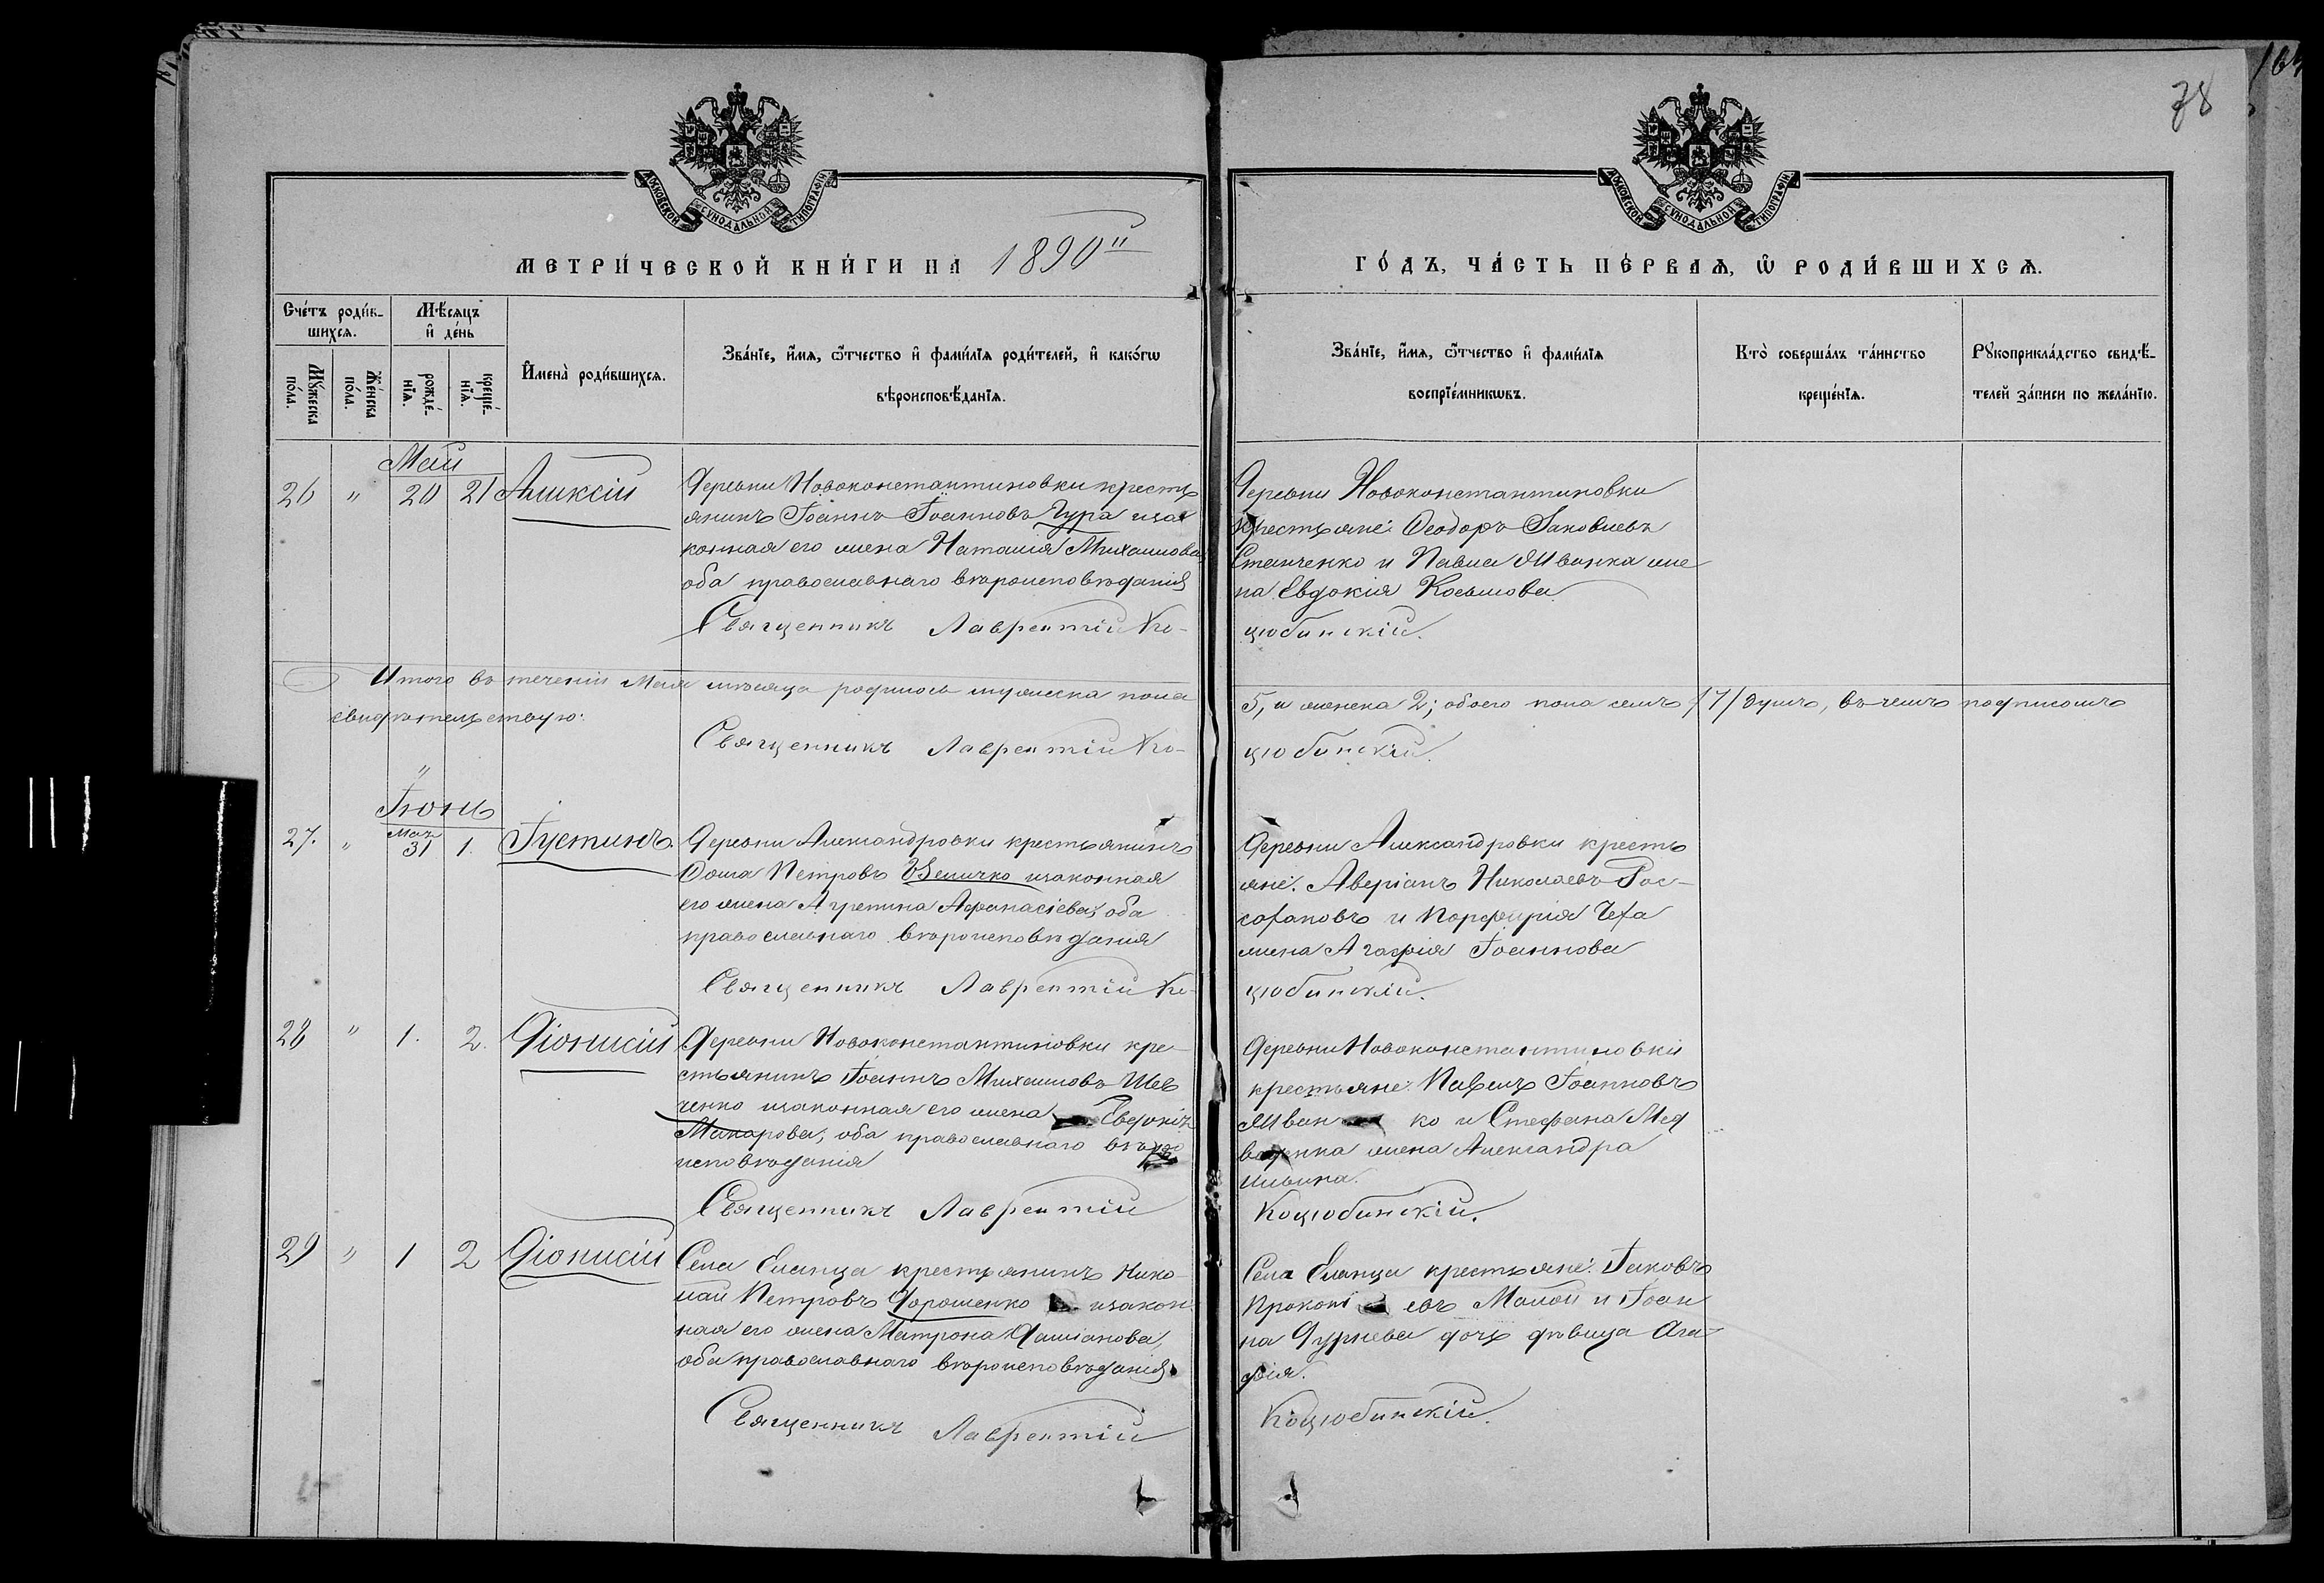 78
МОСКОВСКОЙ СѴНОДАЛЬНОЙ ТИПОГРАФІИ
МОСКОВСКОЙ СѴНОДАЛЬНОЙ ТИПОГРАФІИ
МЕТРИ́ЧЕСКОЙ КНИ́ГИ НА 1890"
ГО́ДЪ, ЧА́СТЬ ПЕ́РВАѦ, Ѽ РОДИ́ВШИХСѦ.
Сче́тъ роди́в-
шихсѧ.
Мѣ́сѧцъ
и҆ де́нь
Мꙋ́жеска
по́ла.
Же́нска
по́ла.
рожде́-
нїѧ.
креще́-
нїѧ.
И҆мена̀ роди́вшихсѧ.
Зва́нїе, и҆́мѧ, ѻ҆́тчество и҆ фами́лїѧ роди́телей, и҆ како́гѡ
вѣроисповѣ́данїѧ.
Зва́нїе, и҆́мѧ, ѻ҆́тчество и҆ фами́лїѧ
воспрїе́мникѡвъ.
Кто̀ соверша́лъ та́инство
креще́нїѧ.
Рꙋкоприкла́дство свидѣ́-
телей за́писи по жела́нїю.
Май
26 " 20 21 Алексій
Деревни Новоконстантиновки кресть
янинъ Іоаннъ Іоанновъ Гура изак
конная его жена Наталія Михаилова,
оба православнаго вѣроисповѣданія
Священникъ Лаврентій Ко-
Деревни Новоконстантиновки
крестьяне: Ѳеодоръ Іаковлевъ
Степченко и Павла Иванка же
на Евдокія Косьмова
цюбинскій.
Итого въ теченіи Мая мѣсяца родилось мужеска пола
5, и женска 2; обоего пола семь /7/ душъ, въ чемъ подписомъ
свидѣтельствую:
Священникъ Лаврентій Ко-
цюбинскій.
"
Іюнь
27. " Мая 31 1. Іустинъ.
Деревни Александровки крестьянинъ
Ѳома Петровъ Величко изаконная
его жена Агрепина Афанасіева, оба
православнаго вѣроисповѣданія
Священникъ Лаврентій Ко-
Деревни Александровки кресть
яне: Аверіанъ Николаевъ
и Порфирія
жена Агафія Іоаннова
цюбинскій.
28 " 1. 2. Діонисій
Деревни Новоконстантиновки кре-
стьянинъ Іоаннъ Михаиловъ Шев
ченко изаконная его жена Евдокія
Макарова, оба православнаго вѣро
исповѣданія
Священникъ Лаврентій
Деревни Новоконстантиновки
крестьяне: Павелъ Іоанновъ
Иван ко и Стефана Мед
вѣденка жена Александра
Ильина.
Коцюбинскій.
29 " 1 2 Діонисій
Села Еланца крестьянинъ Нико-
лай Петровъ Дорошенко изакон
ная его жена Матрона Даміанова,
оба православнаго вѣроисповѣданія.
Священникъ Лаврентій
Села Еланца крестьяне: Іаковъ
Прокопі евъ Малой и Іоан
на Дурнева дочь дѣвица Ага-
фія.
Коцюбинскій.